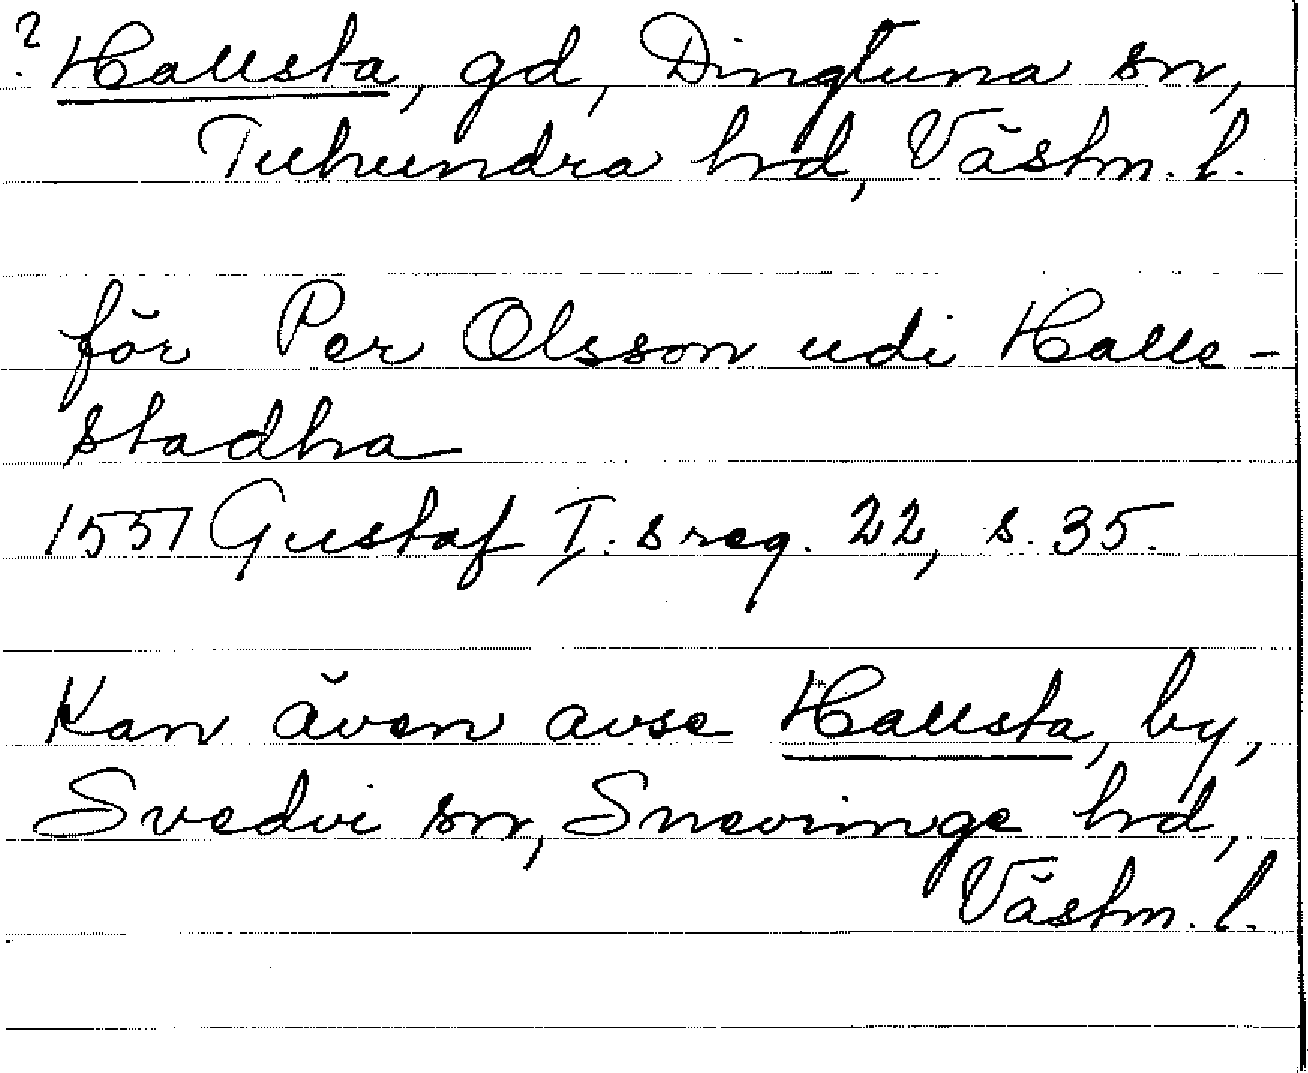 ? Hallsta, gd, Dingtuna sn,
Tuhundra hrd, Västm. l.
för Per Olsson udi Halle-
stadha
1551 Gustaf I:s reg. 22, s. 35.
Kan även avse Hallsta, by,
Svedvi sn, Snevringe hrd,
Västm. l.